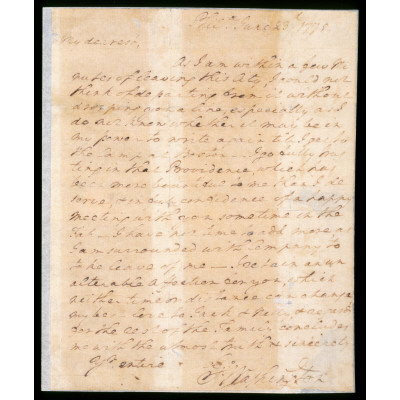 Phila June 23d 1775.
My dearest,
As I am within a few Mi-
nutes of leaving this City, I could not
think of departing from it without
dropping you a line, especially as I
do not know whether it may be in
my power to write again till I get to
the Camp at Boston — I go fully trus-
ting in that Providence, which has
been more bountiful to me than I de-
serve, & in full confidence of a happy
meeting with you sometime in the
Fall — I have not time to add more, as
I am surrounded with Company to
take leave of me — I retain an un-
alterable affection for you, which
neither time or distance can change
my best love to Jack & Nelly, & regard
for the rest of the Family concludes
me with the utmost truth & sincerety
Yr entire
Go: Washington